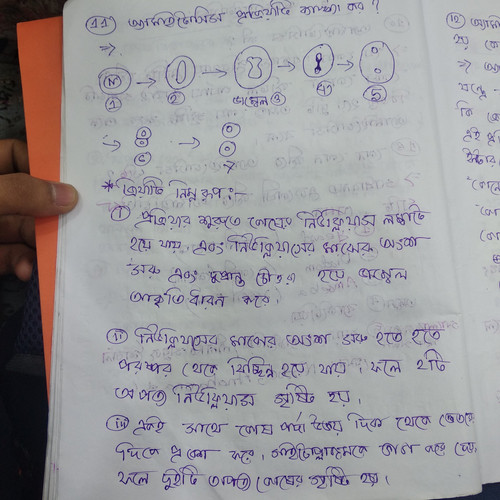 (১১) অ্যামাইটোসিস প্রক্রিয়াটি ব্যাখ্যা কর ?
⇒
→ → → →
① 2 ডাম্বেল ③ ৪) 5
→ →
৬ 7
* প্রক্রিয়াটি নিম্নরূপ :-
(i) প্রক্রিয়ার শুরুতে কোষের নিউক্লিয়াস লম্বাটে
হয়ে যায় এবং নিউক্লিয়াসের মাঝের অংশ
সরু এবং দুপ্রান্ত মোটা হয়ে ডাম্বেল
আকৃতি ধারন করে।
(ii) নিউক্লিয়াসের মাঝের অংশ সরু হতে হতে
পরস্পর থেকে বিচ্ছিন্ন হয়ে যায়। ফলে ২টি
অপত্য নিউক্লিয়াস সৃষ্টি হয়।
(iii) একই সাথে কোষ পর্দা উভয় দিক থেকে ভেতরের
দিকে প্রবেশ করে। সাইটোপ্লাজমকে ভাগ করে দেয়
ফলে দুইটি অপত্য কোষের সৃষ্টি হয়।